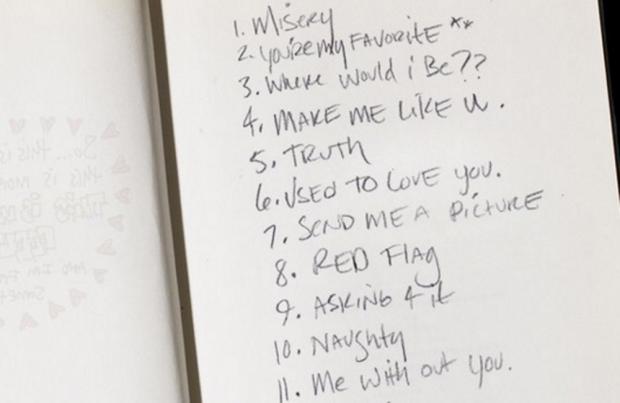 1. Misery
2. you're my FAVORITE **
3. Where would i Be??
4. MAKE ME LIKE U.
5. TRUTH
6. USED TO LOVE YOU.
7. SEND ME A PICTURE
8. RED FLAG
9. ASKING 4 it
10. NAUGHTY
11. Me With out you.